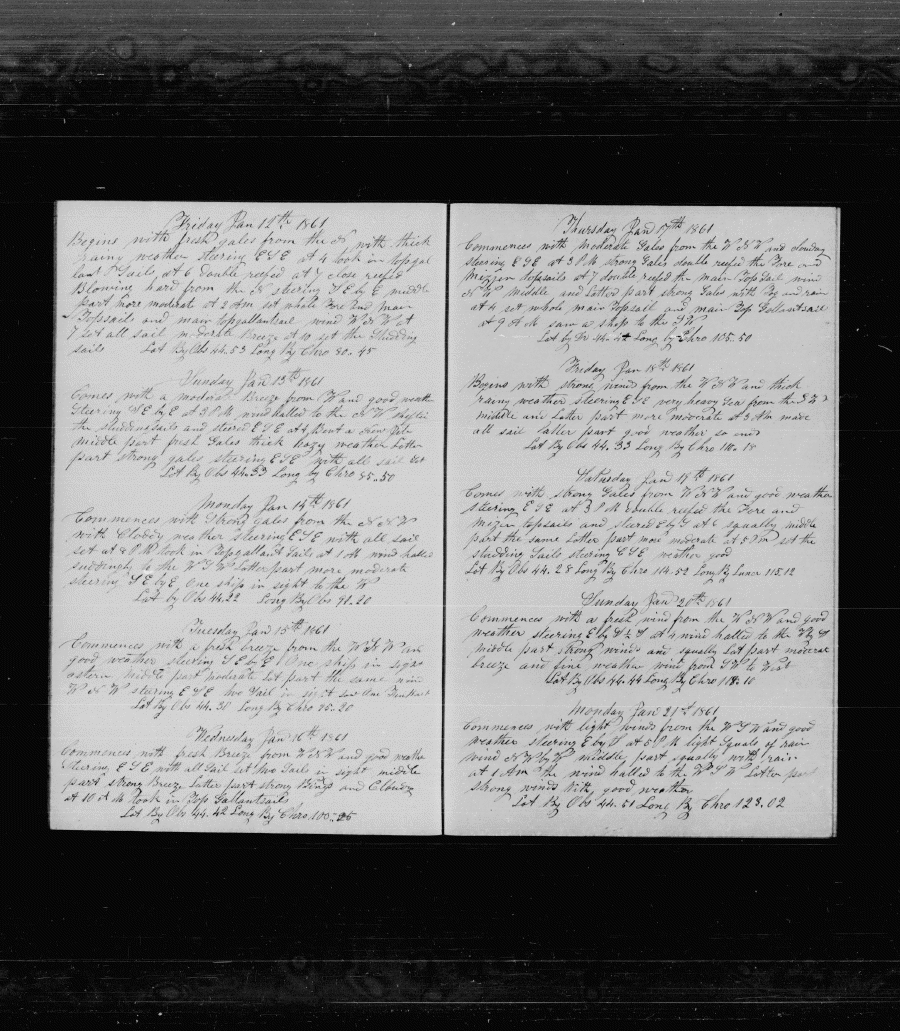 Friday Jan 12th 1861
Begins with fresh gales from the N with thick
rainy weather steering ESE at 4 took in topgal
lant Sails, at 6 double reefed at 7 close reefed
Blowing hard from the N steering SE by E middle
part more moderate at 2 Am set whole Fore and main
Topsails and main topgallantsail wind WNW at
7 set all sail moderate Breeze at 10 set the Studding
sails Lat By Obs 44.53 Long By Chro 80..45
Sunday Jan 13th 1861
Comes with a moderat Breeze from W and good weather
Steering SE by E at 3 P.M. wind halled to the NW
the studdingsails and steered ESE at 4 Bent a new Jib
middle part fresh Gales thick hazy weather Latter
part strong gales steering ESE with all sail set
Lat By Obs 44.33 Long by Chro 85..50
Monday Jan 14th 1861
Commences with Strong gales from the NNW
with Cloudy weather steering ESE with all sail
set at 8 P.M. took in Topgallant Sails at 1 AM wind halled
suddingly to the WSW Latter part more moderate
steering SE by E One ship in sight to the W
Lat by Obs 44.22 Long By Obs 91.20
Tuesday Jan 15th 1861
Commences with a fresh breeze from the WNW and
good weather steering SE by E One ship in sight
astern middle part moderate Lat part the same wind
WNW steering ESE two Sail in sight
Lat by Obs 44.30 Long By Chro 95.20
Wednesday Jan 16th 1861
Commences with fresh Breeze from WNW and good weather
Steering ESE with all Sail Set two Sails in sight middle
part strong Breeze Latter part strong and Cloudy
at 10 A M took in Top Gallantsails
Lat By Obs 44.42 Long By Chro 100..25
Thursday Jan 17th 1861
Commences with Moderate Gales from the WNW and clouday
steering ESE at 3 P.M. strong Gales double reefed the Fore and
Mizzen topsails at 7 double reefed the main TopSail wind
NW middle and Latter part strong Gales with Fog and rain
at 4 set whole main Topsail and main Top Gallantsail
at 9 A.M. saw a ship to the SW
Lat by Dr 44.42 Long by Chro 105.50
Friday Jan 18th 1861
Begins with strong winds from the WNW and thick
rainy weather steering ESE very heavy Sea from the
middle and Latter part more moderate at 3 Am made
all sail latter part good weather so ends
Lat By Obs 44.33 Long By Chro 110.18
Satusday Jan 19th 1861
Comes with strong Gales from WNW and good weather
steering ESE at 3 P.M. double reefed the Fore and
mizen topsails and steered E by S at 6 squally middle
part the same Latter part more moderate at 5 Am set the
studding Sails steering ESE weather good
Lat By Obs 44.28 Long By Chro 114.52 Long By Lunar 115.12
Sunday Jan 20th 1861
Commences with a fresh wind from the WNW and good
weather steering E by S ½ S at 4 wind halled to the W by S
middle part strong winds and squally Lat part moderat
breeze and fine weather wind from SW to West
Lat By Obs 44.44 Long By Chro 118.10
Monday Jan 21st 1861
Commences with light winds from the WSW and good
weather steering E by S at 5 P.M. light Squals of rain
wind NW by W middle part squally with rain
at 1 Am the wind halled to the WSW Latter part
strong winds with good weather
Lat By Obs 44.51 Long By Chro 123.02